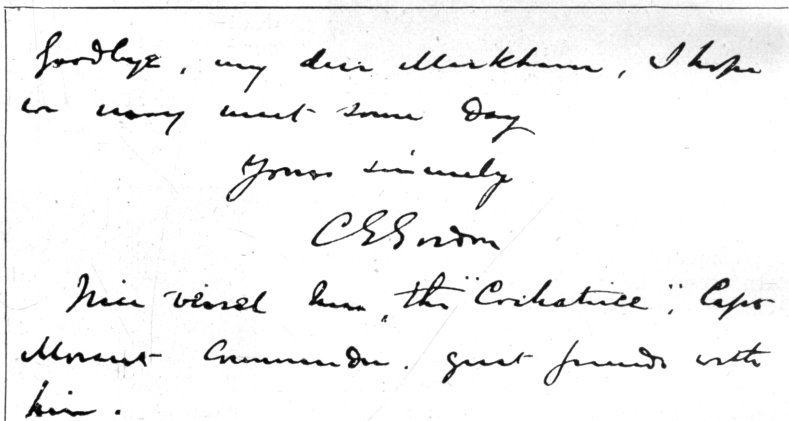 Goodbye, my dear Markham, I hope
we may meet some day
Yours sincerely
C E Gordon
Nice vessel here, the "Cockatrice", Capt
Morant Commander. great friends with
him.